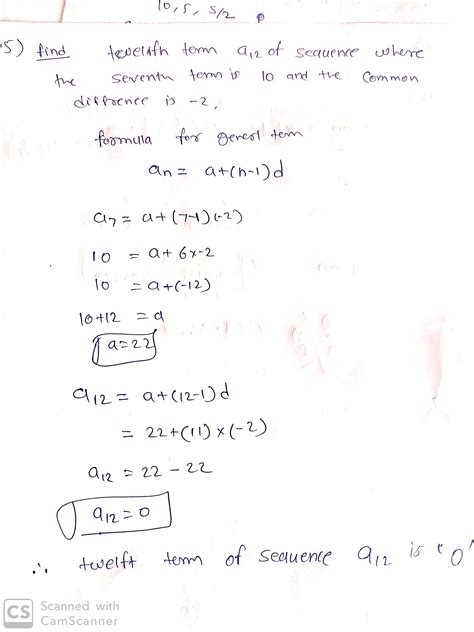 10, 5, 5/2
5) find twelsth term a12 of sequence where
the seventh term is 10 and the common
diffrence is -2,
formula for generl term
an = a+(n-1)d
a7 = a+(7-1)(-2)
10 = a+6x-2
10 = a+(-12)
10+12 = a
a=22
a12 = a+(12-1)d
= 22+(11)×(-2)
a12 = 22-22
a12=0
∴ twelft term of sequence a12 is "0"
CS Scanned with
CamScanner